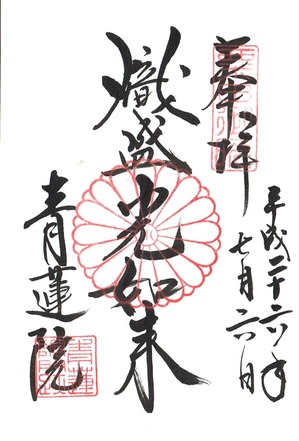 奉拝
平成二十六年
七月六日
熾盛光如来
青蓮院